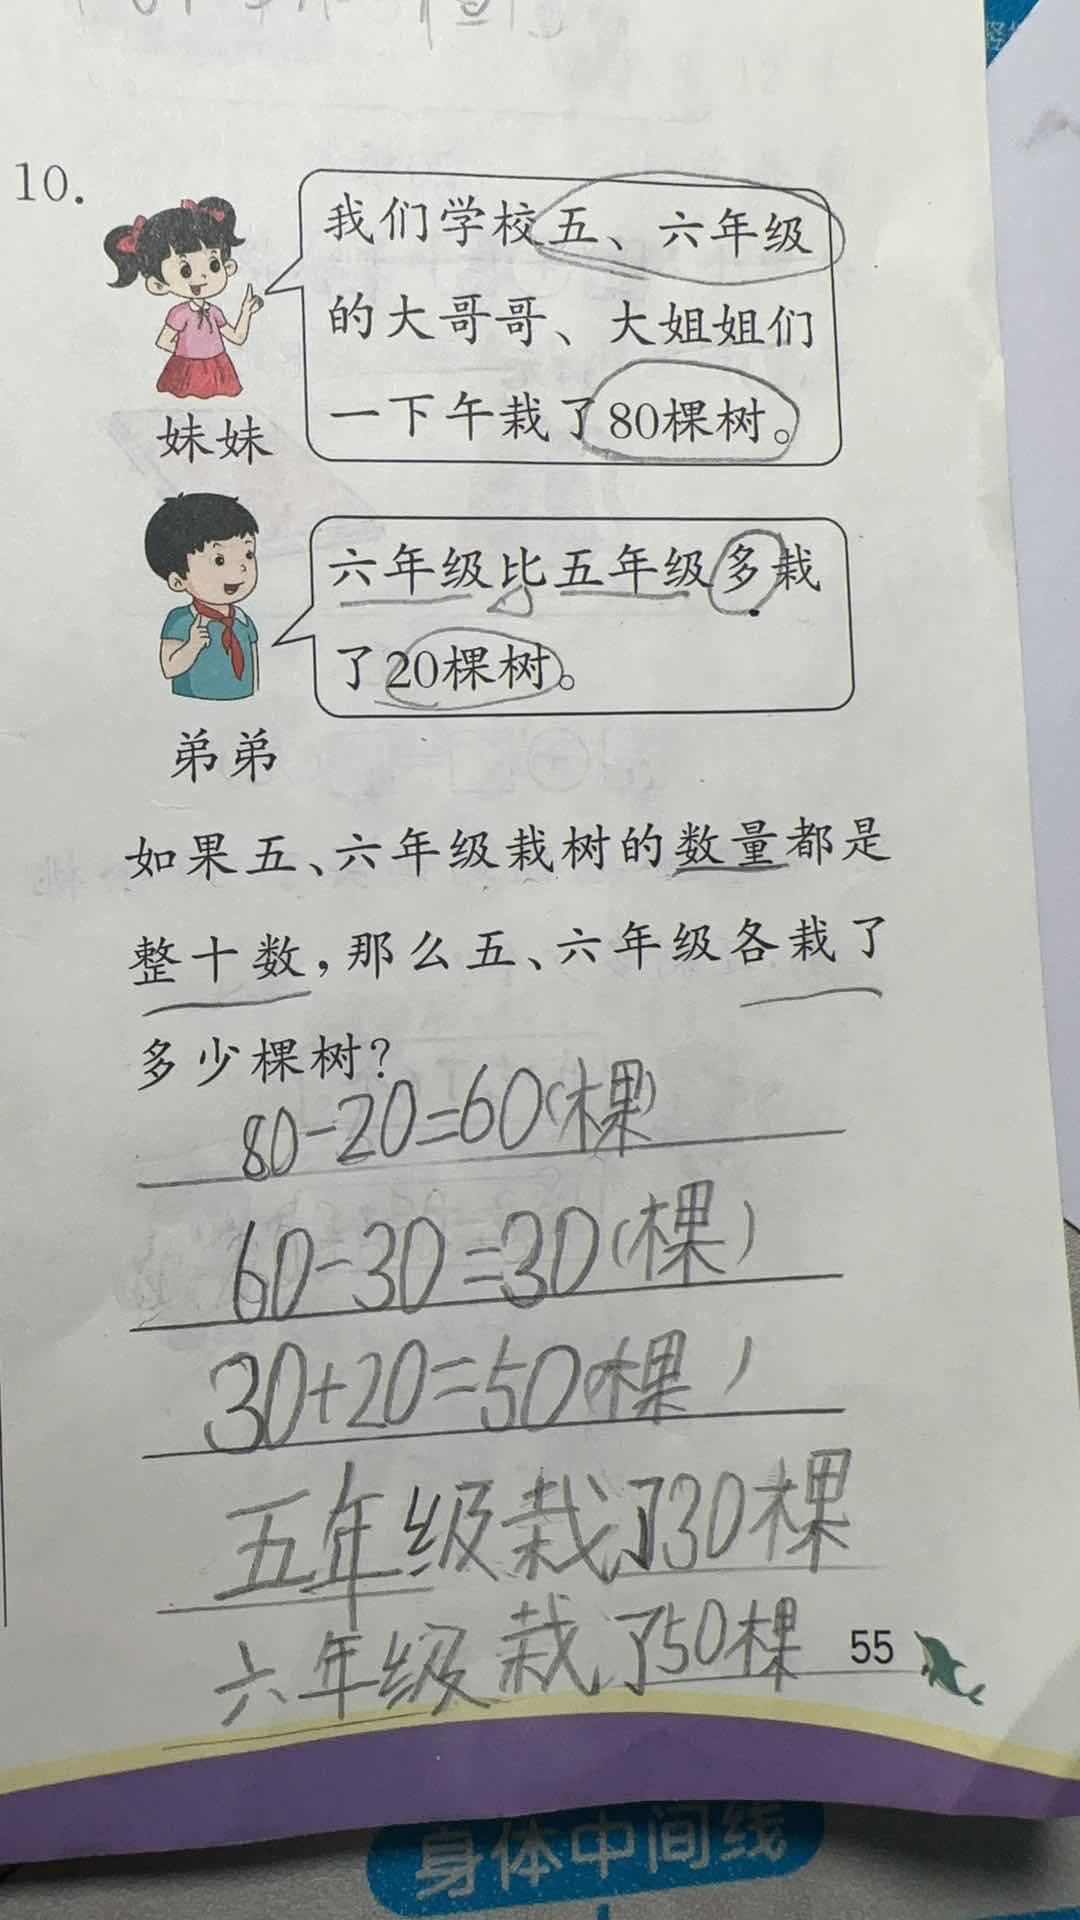 10.
我们学校五、六年级
的大哥哥、大姐姐们
一下午栽了80棵树。
妹妹
六年级比五年级多栽
了20棵树。
弟弟
如果五、六年级栽树的数量都是
整十数，那么五、六年级各栽了
多少棵树？
80-20=60(棵)
60-30=30(棵)
30+20=50(棵)
五年级栽了30棵
六年级栽了50棵
55
身体中间线